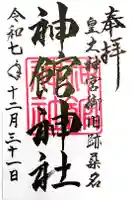 奉拝
皇大神宮御旧跡桑名
神館神社
令和七年十二月三十一日